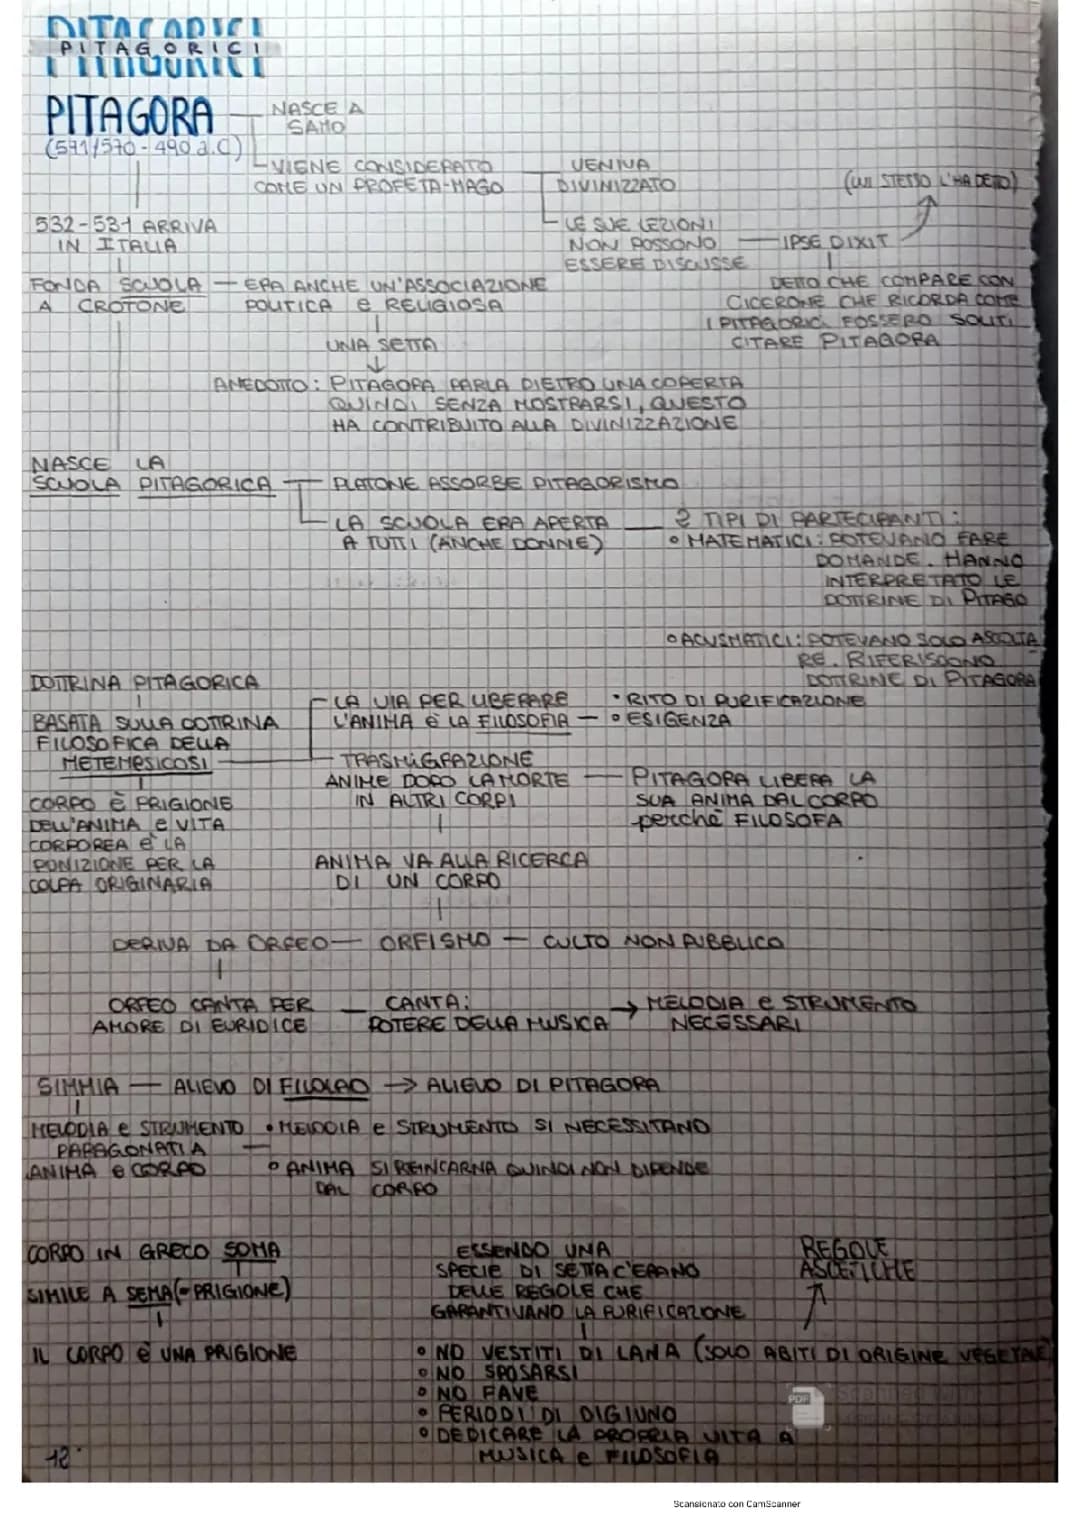 PITAGORICI
PITAGORICI
PITAGORA
(571/570-490 a.C)
NASCE A
SAMO
VIENE CONSIDERATO
COME UN PROFETA-MAGO
VENIVA
DIVINIZZATO
(LUI STESSO L'HA DETTO)
532-531 ARRIVA
IN ITALIA
LE SUE LEZIONI
NON POSSONO
ESSERE DISCUSSE
IPSE DIXIT
FONDA SCUOLA
A CROTONE
ERA ANCHE UN'ASSOCIAZIONE
POLITICA e RELIGIOSA
DETTO CHE COMPARE CON
CICERONE CHE RICORDA COME
I PITAGORICI FOSSERO SOLITI
CITARE PITAGORA
UNA SETTA
ANEDOTTO: PITAGORA PARLA DIETRO UNA COPERTA
QUINDI SENZA MOSTRARSI, QUESTO
HA CONTRIBUITO ALLA DIVINIZZAZIONE
NASCE LA
SCUOLA PITAGORICA
PLATONE ASSORBE PITAGORISMO
LA SCUOLA ERA APERTA
A TUTTI (ANCHE DONNE)
2 TIPI DI PARTECIPANTI:
• MATEMATICI: POTEVANO FARE
DOMANDE. HANNO
INTERPRETATO LE
DOTTRINE DI PITAGO
• ACUSMATICI: POTEVANO SOLO ASCOLTA
RE. RIFERISCONO
DOTTRINE DI PITAGORA
DOTTRINA PITAGORICA
BASATA SULLA DOTTRINA
FILOSOFICA DELLA
METEMPSICOSI
LA VIA PER LIBERARE
L'ANIMA è LA FILOSOFIA
• RITO DI PURIFICAZIONE
• ESIGENZA
TRASMIGRAZIONE
ANIME DOPO LA MORTE
IN ALTRI CORPI
PITAGORA LIBERA LA
SUA ANIMA DAL CORPO
perchè FILOSOFA
CORPO È PRIGIONE
DELL'ANIMA e VITA
CORPOREA è LA
PUNIZIONE PER LA
COLPA ORIGINARIA
ANIMA VA ALLA RICERCA
DI UN CORPO
DERIVA DA ORFEO
ORFISMO
CULTO NON PUBBLICO
ORFEO CANTA PER
AMORE DI EURIDICE
CANTA:
POTERE DELLA MUSICA
→ MELODIA e STRUMENTO
NECESSARI
SIMMIA — ALLIEVO DI FILOLAO → ALLIEVO DI PITAGORA
MELODIA e STRUMENTO
PARAGONATI A
ANIMA e CORPO
• MELODIA e STRUMENTO SI NECESSITANO
• ANIMA SI REINCARNA QUINDI NON DIPENDE
DAL CORPO
CORPO IN GRECO SOMA
SIMILE A SEMA (= PRIGIONE)
IL CORPO è UNA PRIGIONE
ESSENDO UNA
SPECIE DI SETTA C'ERANO
DELLE REGOLE CHE
GARANTIVANO LA PURIFICAZIONE
REGOLE
ASCETICHE
• NO VESTITI DI LANA (SOLO ABITI DI ORIGINE VEGETALE)
• NO SPOSARSI
• NO FAVE
• PERIODI DI DIGIUNO
• DEDICARE LA PROPRIA VITA A
MUSICA e FILOSOFIA
12
PDF
Scansionato con CamScanner